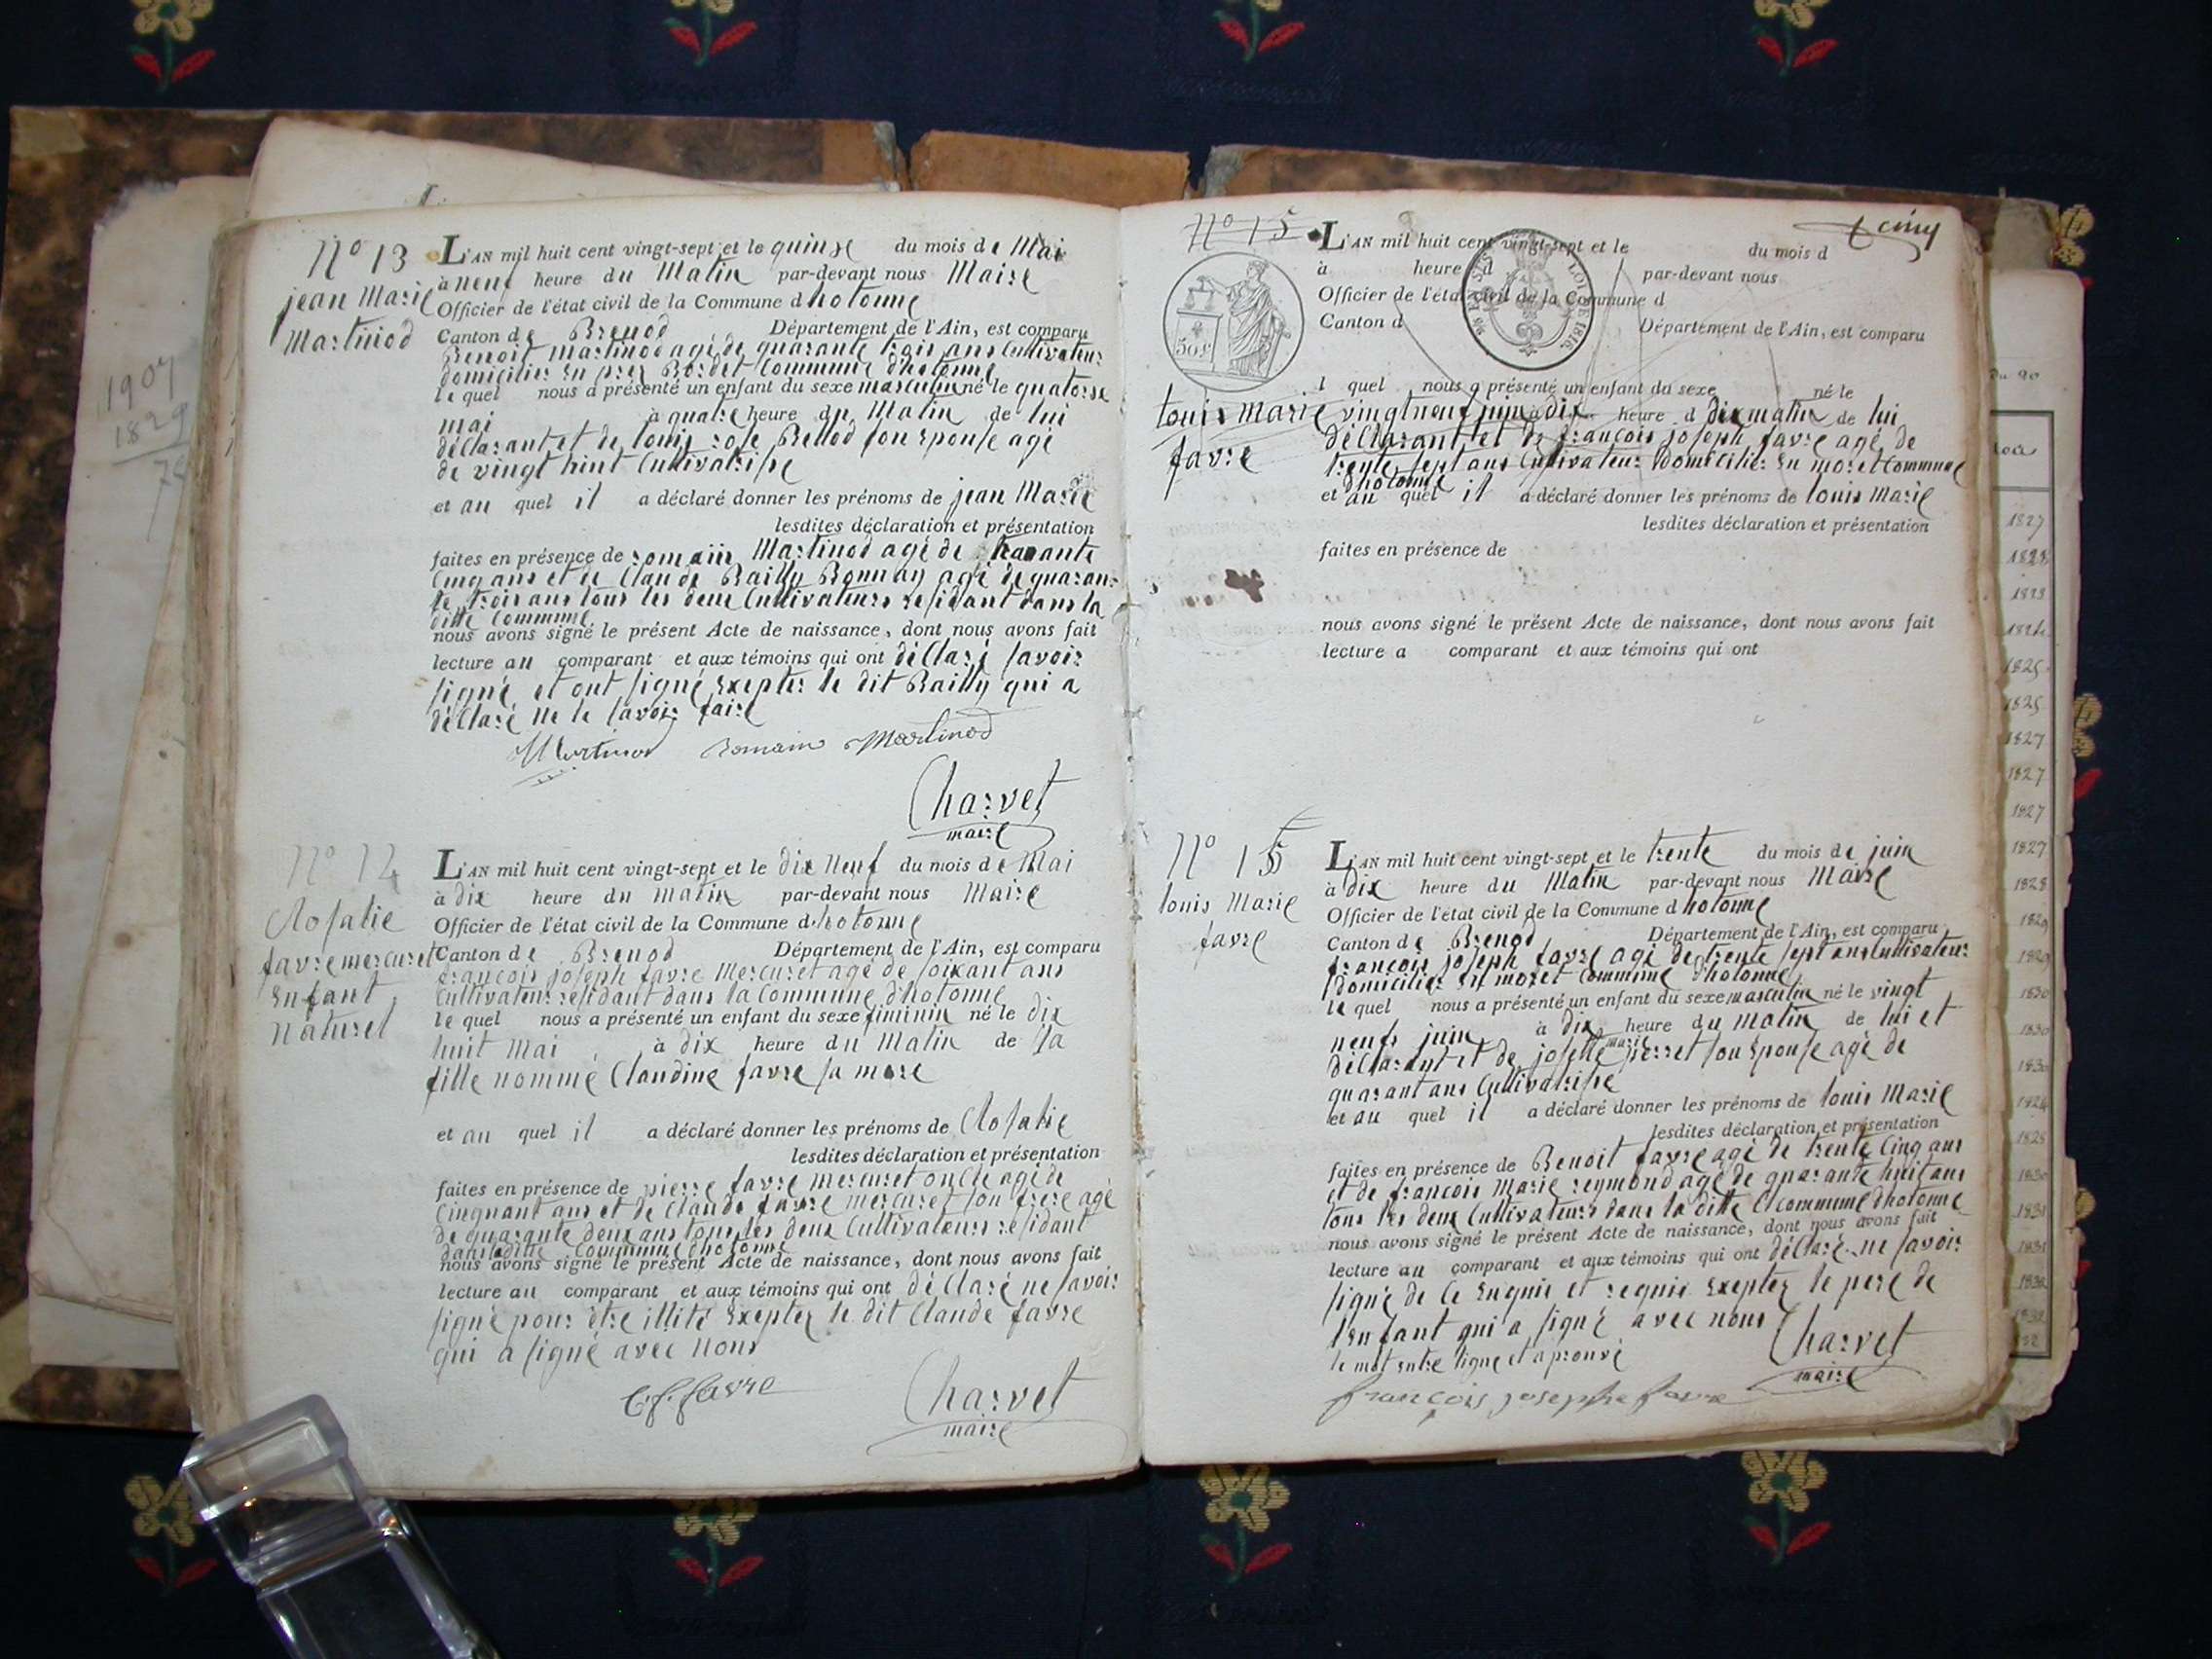 1907
1829
N° 13
jean Marie
Martinod
L'AN mil huit cent vingt-sept et le quinse du mois de Mai
à neuf heure du Matin par-devant nous Maire
Officier de l'état civil de la Commune d hotonne
Canton de Brenod Département de l'Ain, est comparu
Benoit martinod agé de quarante trois ans Cultivateur
domicilier en prez Bordet Commune d'hotonne
le quel nous a présenté un enfant du sexe masculin né le quatorse
mai à quatre heure du Matin de lui
déclarant et de louis rose Benod son Epouse agé
de vingt huit Cultivatrisse
et au quel il a déclaré donner les prénoms de jean Marie
lesdites déclaration et présentation
faites en présence de romain Martinod agé de
Cinq ans et de Claude Bailly Bonnay agé de quaran-
te trois ans tous les deux Cultivateurs residant dans la
ditte Commune
nous avons signé le présent Acte de naissance, dont nous avons fait
lecture au comparant et aux témoins qui ont déclaré savoir
signé et ont signé Exepter le dit Bailly qui a
déclaré ne le savoir faire
Martinod romain Martinod
Charvet
maire
N° 14
Rosalie
favre mercuret
Enfant
naturel
L'AN mil huit cent vingt-sept et le dix Neuf du mois de Mai
à dix heure du matin par-devant nous Maire
Officier de l'état civil de la Commune d hotonne
Canton de Brenod Département de l'Ain, est comparu
francois joseph favre Mercuret agé de soixant ans
Cultivateur residant dans la Commune d'hotonne
le quel nous a présenté un enfant du sexe fiminin né le dix
huit Mai à dix heure du Matin de sa
fille nommé Claudine favre sa mere
et au quel il a déclaré donner les prénoms de Rosalie
lesdites déclaration et présentation
faites en présence de pierre favre mercuret oncle agé de
Cinquant ans et de Claude favre mercuret son frere agé
de quarante deux ans tous les deux Cultivateurs residant
dans laditte Commune d'hotonne
nous avons signé le présent Acte de naissance, dont nous avons fait
lecture au comparant et aux témoins qui ont déclaré ne savoir
signé pour être illité Exepter le dit Claude favre
qui a signé avec nous
C. f. favre Charvet
maire
N° 15
L'AN mil huit cent vingt-sept et le du mois d
à heure d par-devant nous
Officier de l'état civil de la Commune d
Canton d Département de l'Ain, est comparu
LOI DE 1816.
50 c
l quel nous a présenté un enfant du sexe né le
louis marie
favre
vingt neuf juin à dix heure d dix matin de lui
déclarant et de francois joseph favre agé de
trente sept ans Cultivateur Domicilier en moret Commune
d'hotonne
et au quel il a déclaré donner les prénoms de louis Marie
lesdites déclaration et présentation
faites en présence de
nous avons signé le présent Acte de naissance, dont nous avons fait
lecture a comparant et aux témoins qui ont
N° 15
louis Marie
favre
L'AN mil huit cent vingt-sept et le trente du mois de juin
à dix heure du Matin par-devant nous Maire
Officier de l'état civil de la Commune d hotonne
Canton de Brenod Département de l'Ain, est comparu
francois joseph favre agé de trente sept ans Cultivateur
domicilier en moret Commune d'hotonne
le quel nous a présenté un enfant du sexe masculin né le vingt
neufs juin à dix heure du matin de lui et
déclarant et de josette marie perret son Epouse agé de
quarant ans Cultivatrisse
et au quel il a déclaré donner les prénoms de louis Marie
lesdites déclaration et présentation
faites en présence de Benoit favre agé de trente Cinq ans
et de francois Marie reymond agé de quarante huit ans
tous les deux Cultivateurs dans la ditte Commune d'hotonne
nous avons signé le présent Acte de naissance, dont nous avons fait
lecture au comparant et aux témoins qui ont déclaré ne savoir
signé de Ce Enquis et requis Exepter le pere de
l'Enfant qui a signé avec nous
le mot entre ligne et aprouvé
Charvet
maire
françois josephe favre